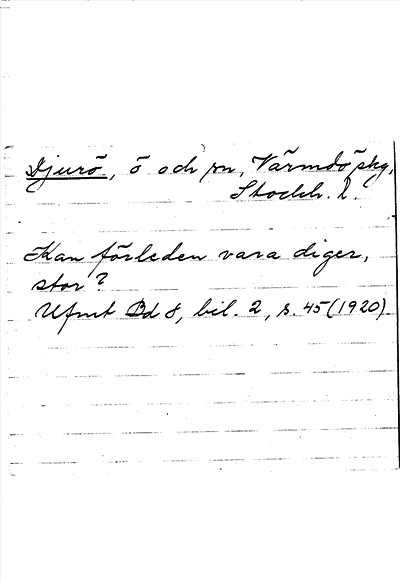 Djurö, ö och sn, Värmdö skg,
Stockh. l.
Kan förleden vara diger,
stor?
Ufmt Bd 8, bil. 2, s. 45 (1920)